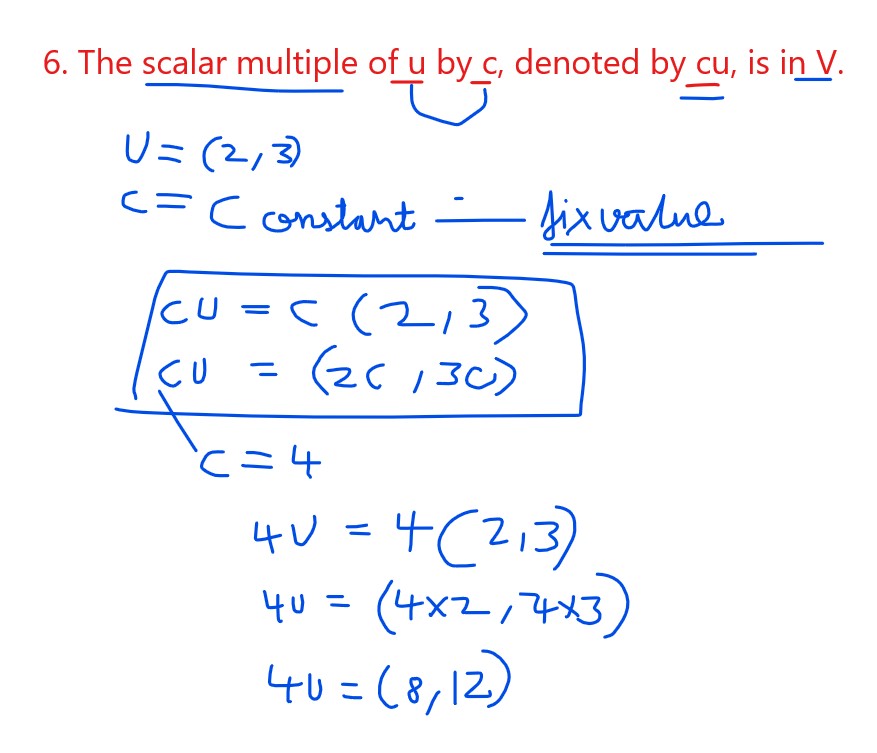 6. The scalar multiple of u by c, denoted by cu, is in V.
U = (2,3)
C = Constant - fixvalue
CU = C (2,3)
CU = (2C,3C)
C = 4
4U = 4(2,3)
4U = (4×2,4×3)
4U = (8,12)